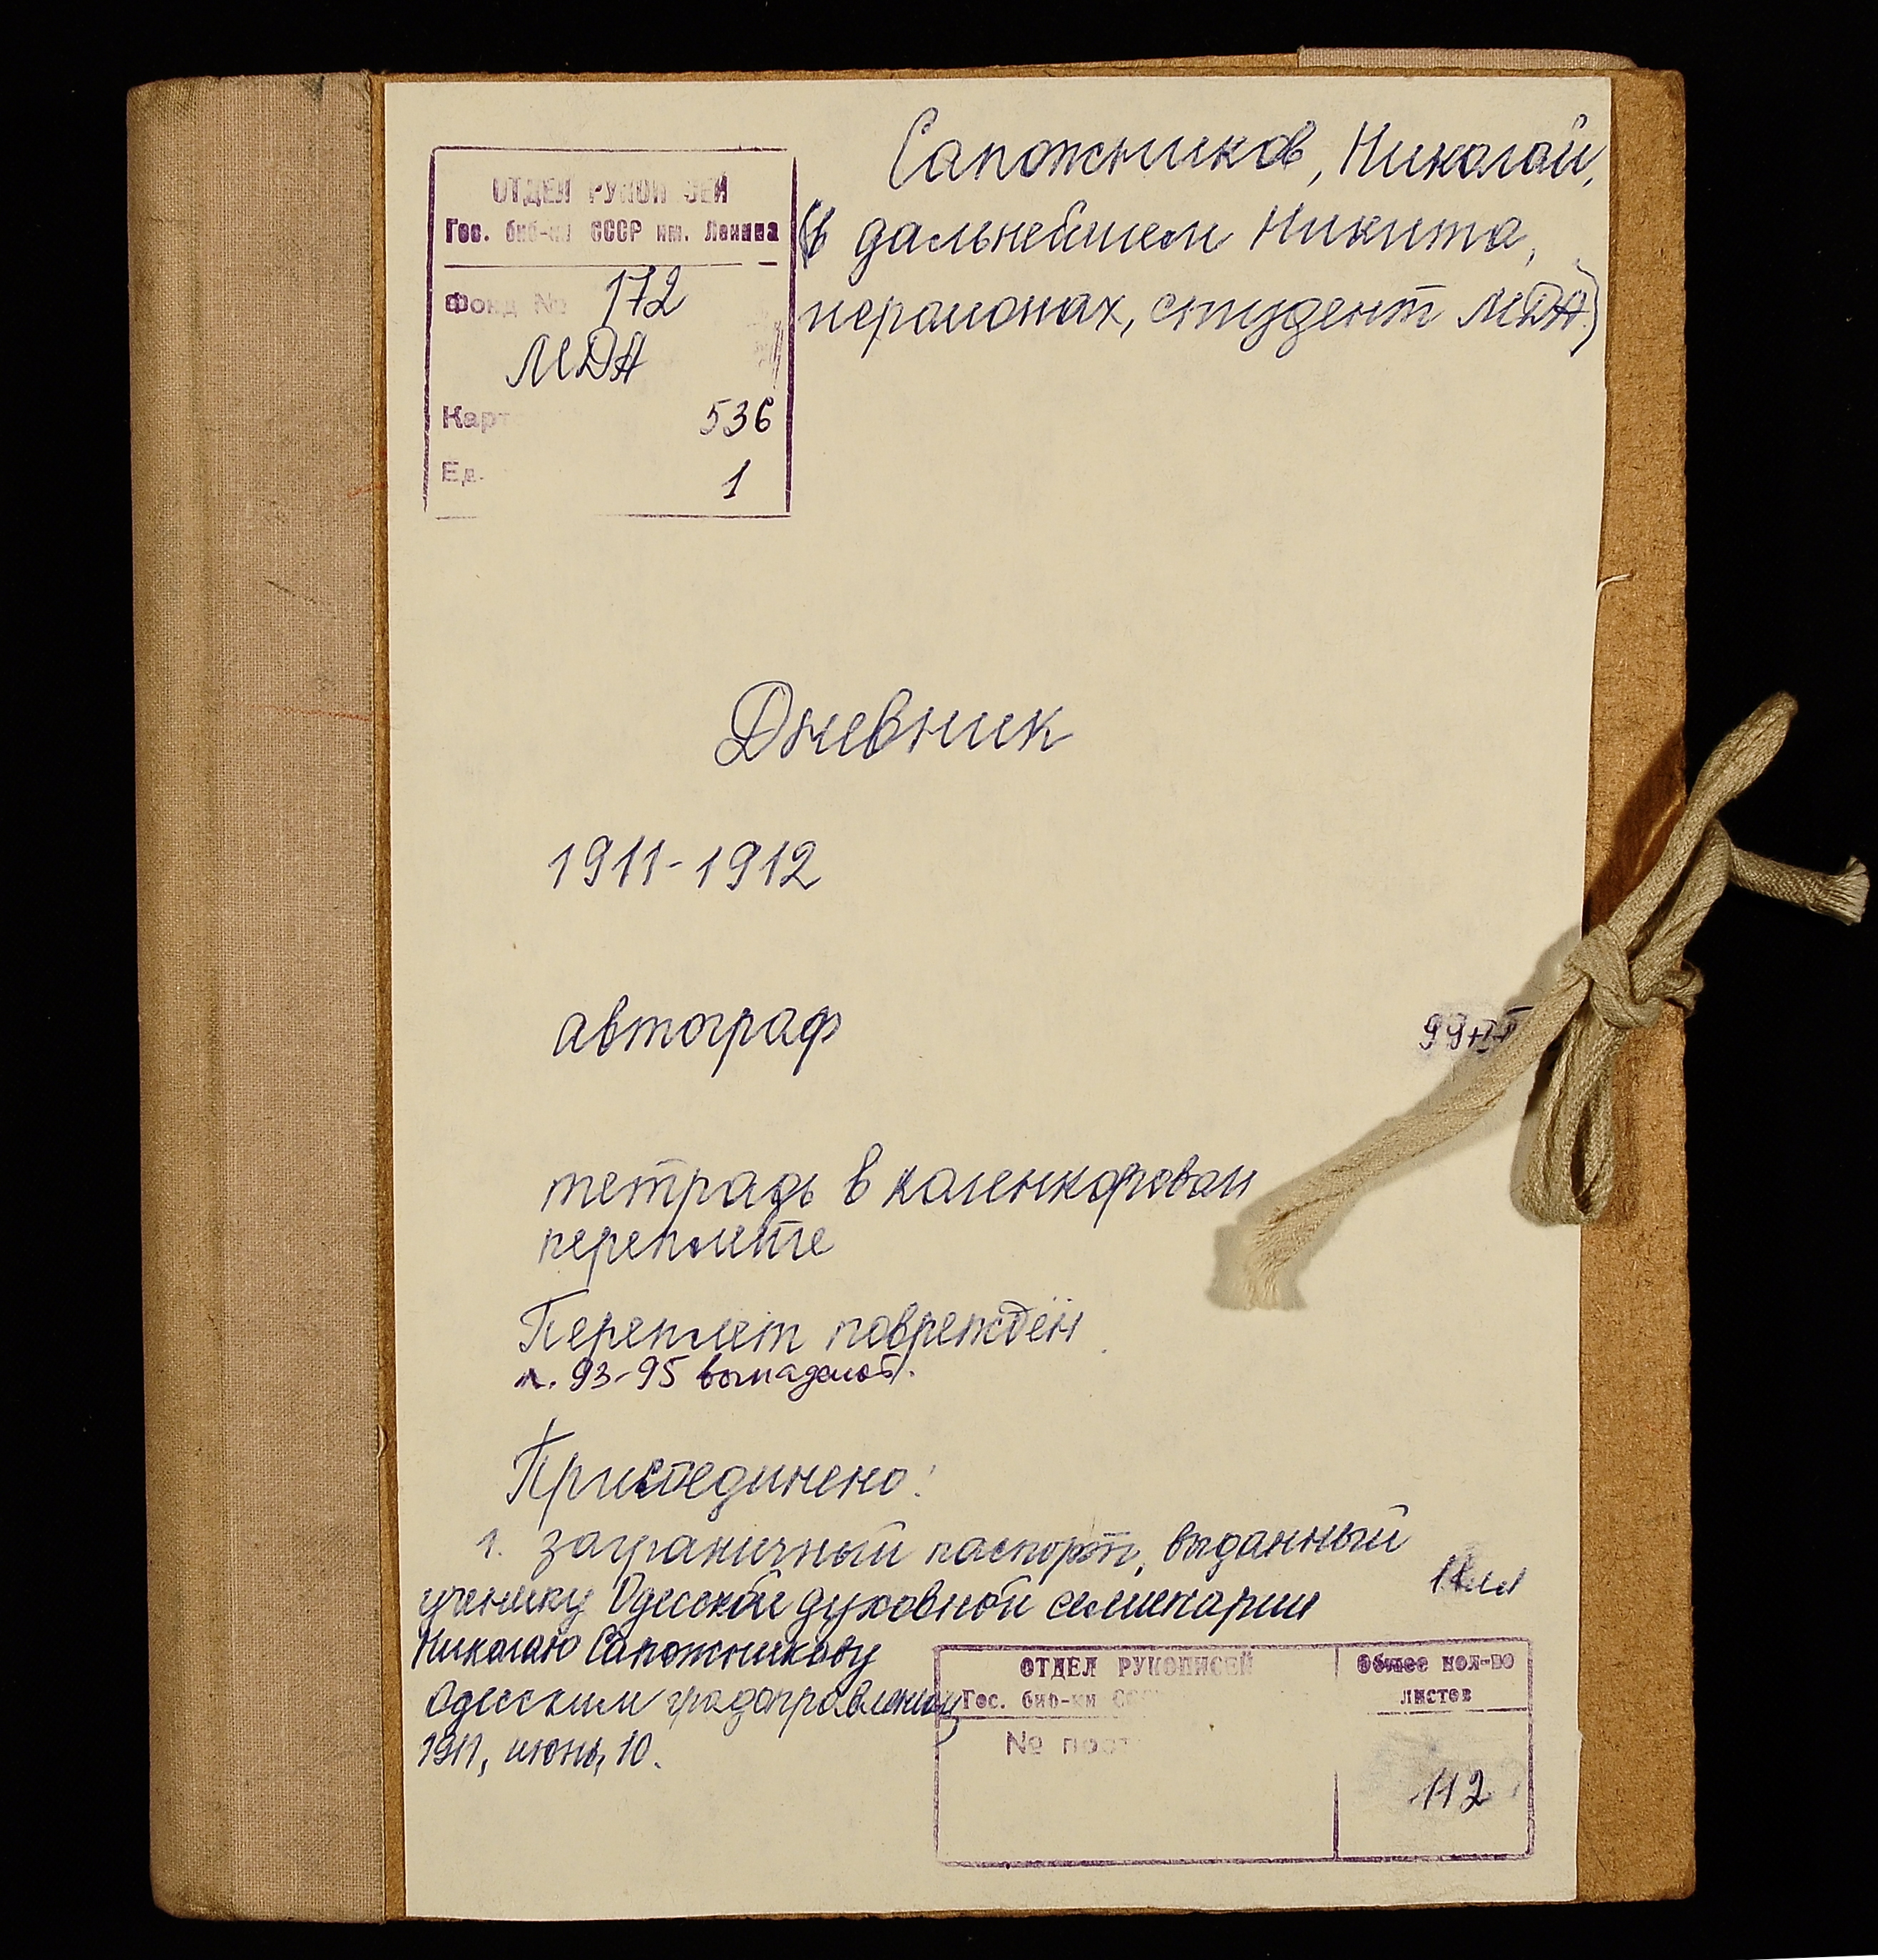 ОТДЕЛ РУКОП ЗЕЙ
Гос. биб-ки СССР им. Ленина
Фонд № 172
МДА
Карт 536
Ед. 1
Сапожников, Николай,
(в дальнейшем Никита,
иеромонах, студент МДА)
Дневник
1911-1912
автограф
99+I+
тетрадь в коленкоровом
переплёте
Переплёт повреждён
л. 93-95 выпадают.
Присоединено:
1. заграничный паспорт, выданный
ученику Одесской духовной семинарии
Николаю Сапожникову
Одесским градоправлением
1911, июнь, 10.
11 лл
ОТДЕЛ РУКОПИСЕЙ
Гос. биб-ки СССР
№ пост
Общее кол-во
листов
112